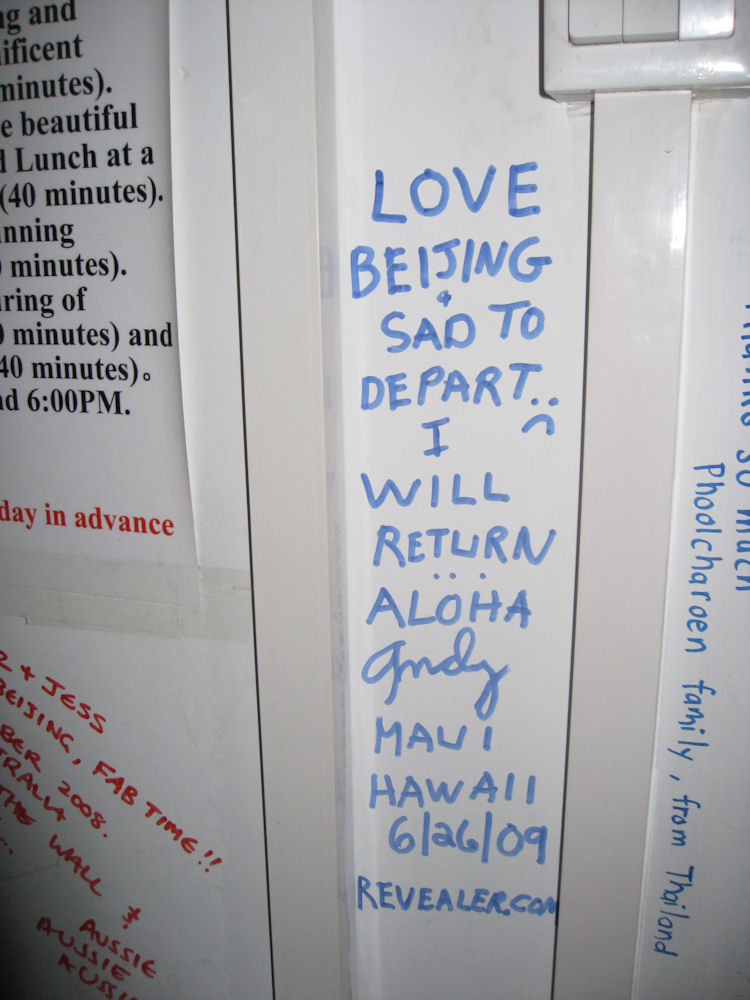 and
minutes).
beautiful
Lunch at a
(40 minutes).
minutes).
of
minutes) and
40 minutes)。
6:00PM.
day in advance
& JESS
BEIJING, FAB TIME!!
2008.
THE WALL &
AUSSIE
AUSSIE
LOVE
BEIJING
&
SAD TO
DEPART..
I
WILL
RETURN
...
ALOHA
Andy
MAUI
HAWAII
6/26/09
REVEALER.COM
so much
Phoolcharoen family, from Thailand